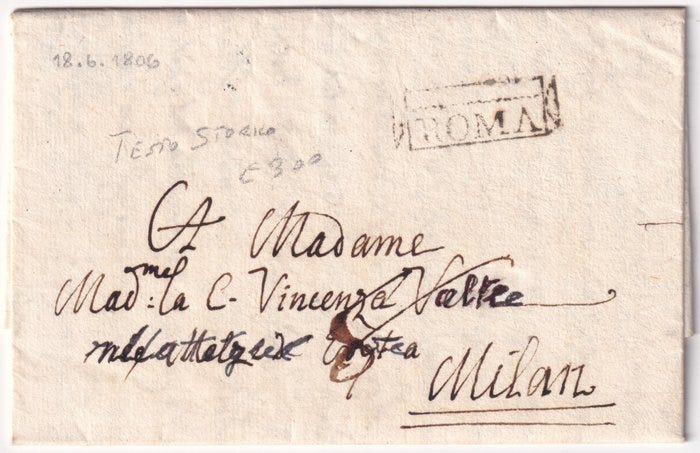 18.6.1806
ROMA
TESTO STORICO
€300
A Madame
Mad:me la C. Vincenza
Milan